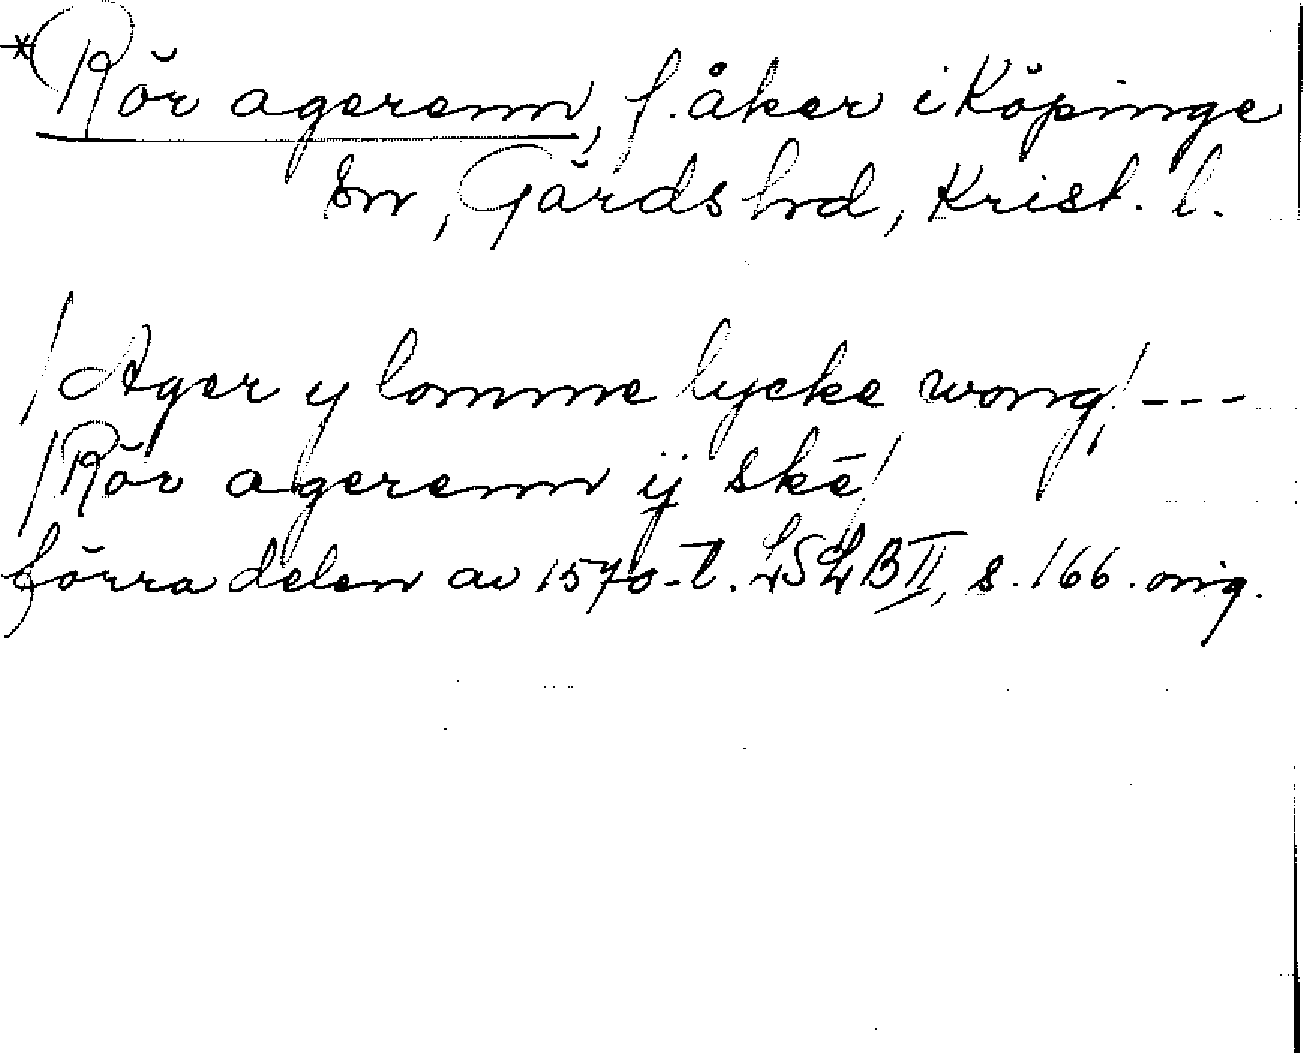 *Rör agerenn, f. åker i Köpinge
sn, Gärds hrd, Krist. l.
/Ager y lomme lycke wong/, ---
/Rör agerenn ÿ skē/
förra delen av 1570-t. LSLB II, s. 166. orig.